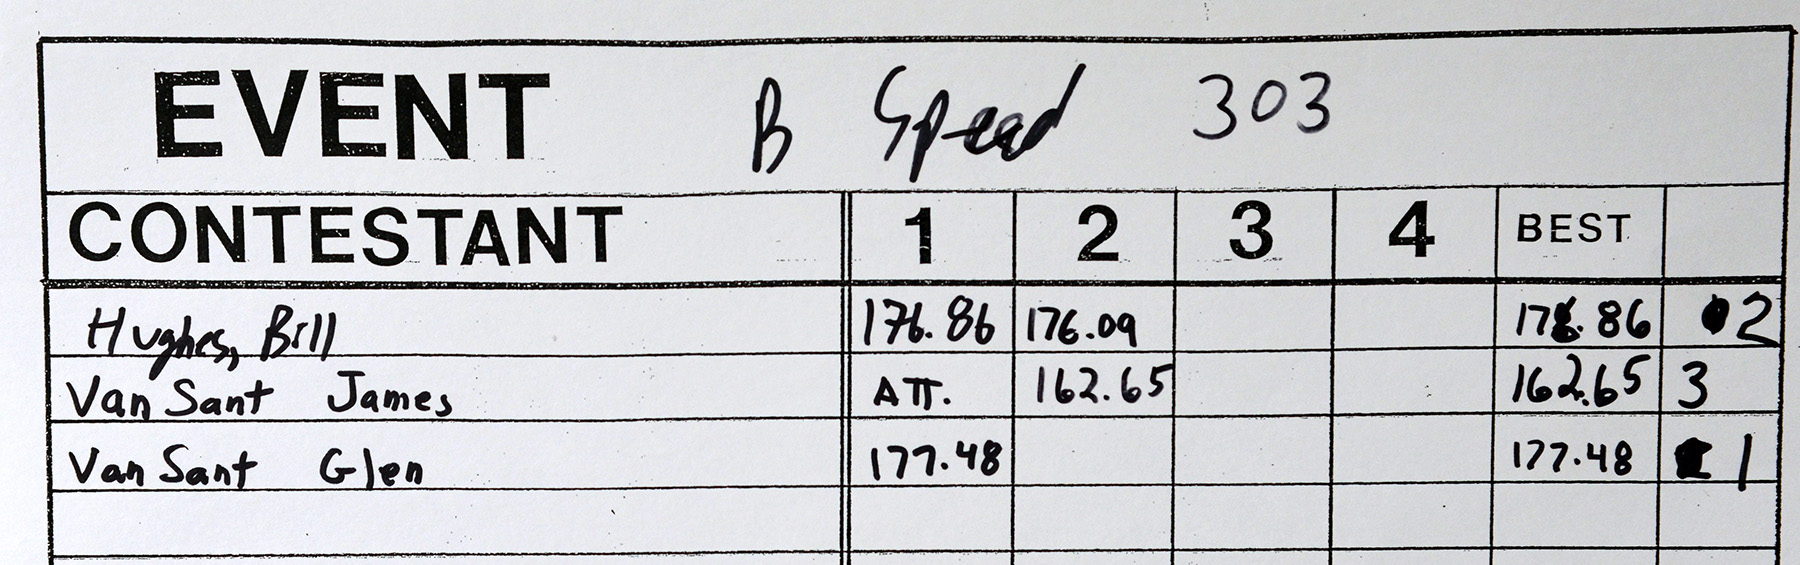 EVENT B Speed 303
CONTESTANT 1 2 3 4 BEST
Hughes, Bill 176.86 176.09 176.86 2
Van Sant James ATT. 162.65 162.65 3
Van Sant Glen 177.48 177.48 1